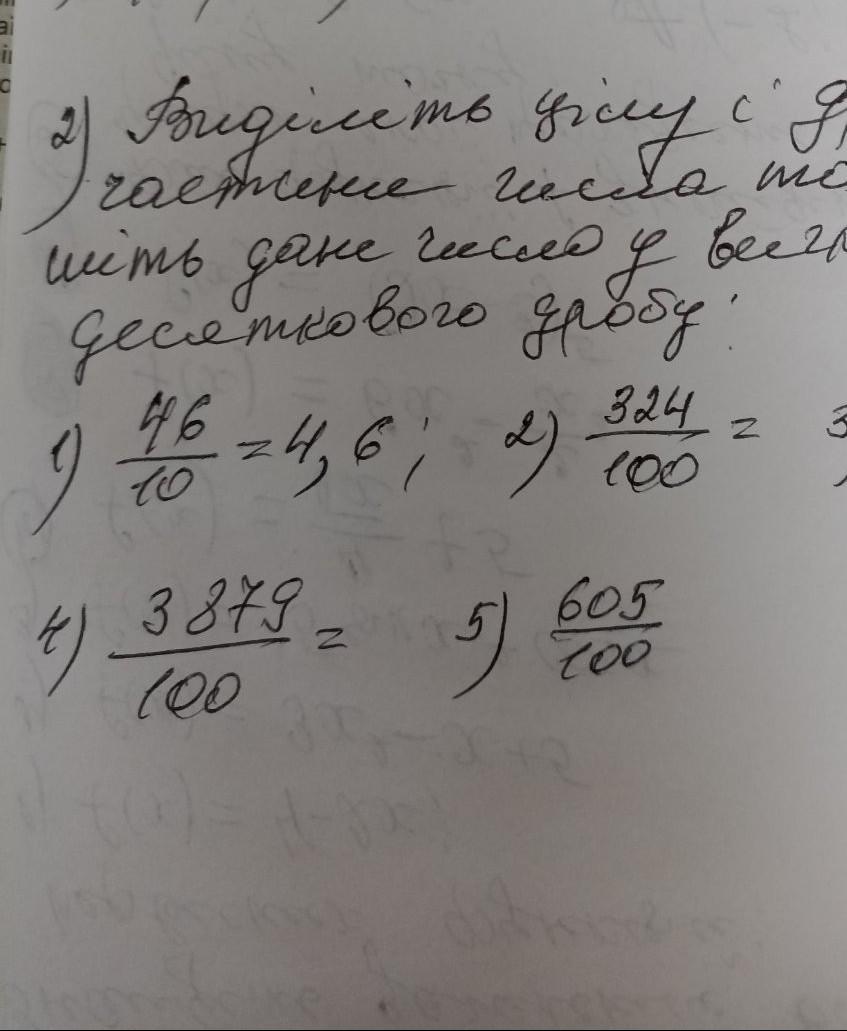 2) Виділіть цілу і др
частини числа та
шіть дане число у вигл
десяткового дробу:
1) 46/10 = 4,6; 2) 324/100 = 3
4) 3879/100 = 5) 605/100